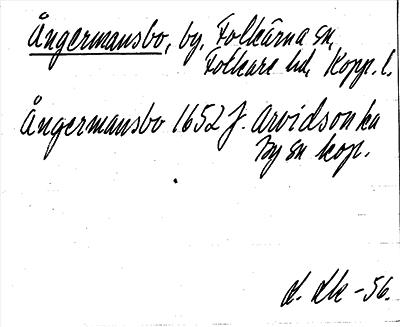 Ångermansbo, by, Folkärna sn,
Folkare hd, Kopp. l.
Ångermansbo 1652 J. Arvidson ka
By sn kop.
d. Lk -56.